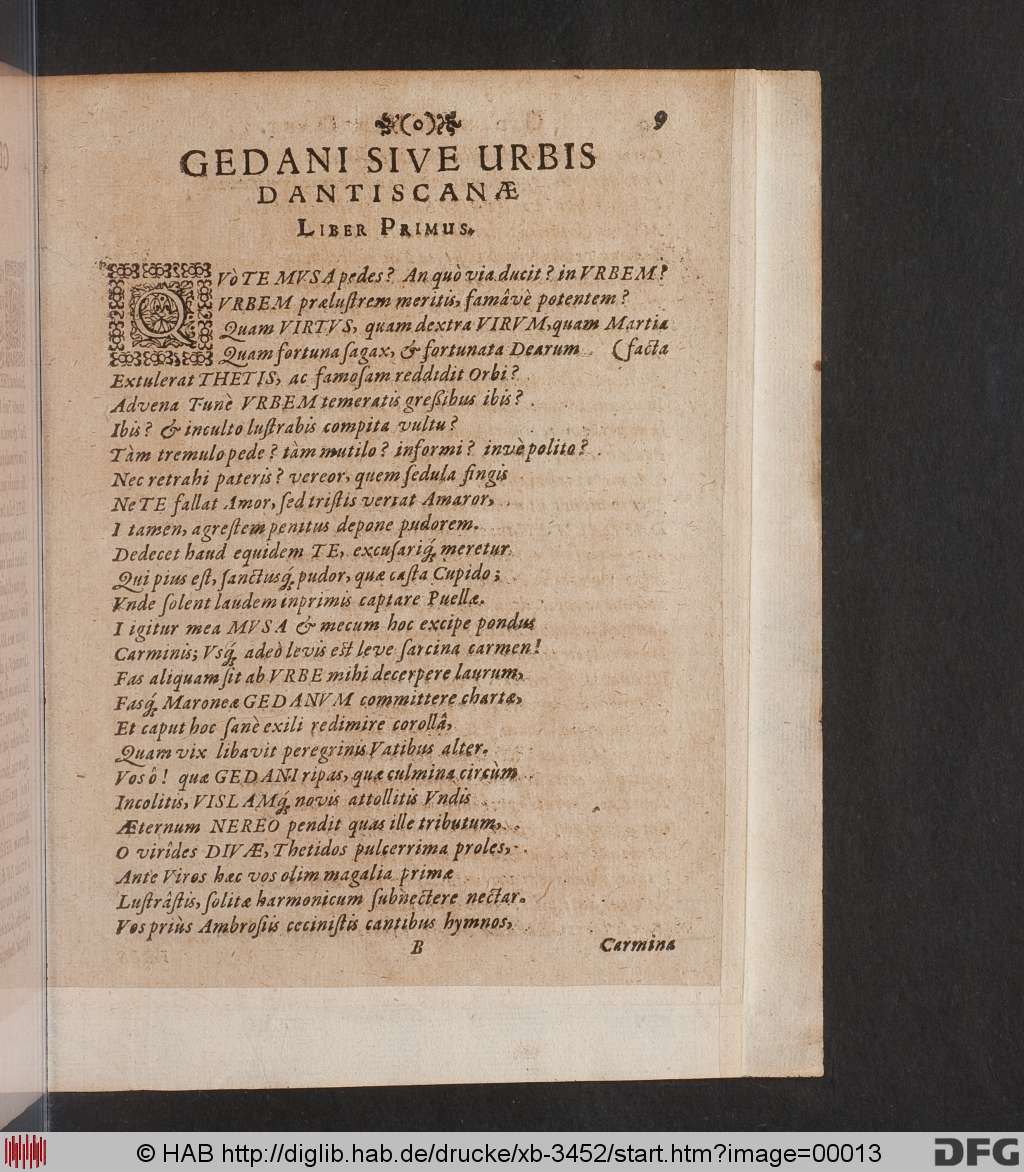 (o) 9
GEDANI SIVE URBIS
DANTISCANÆ
LIBER PRIMUS.
QVò TE MVSA pedes? An quò via ducit? in VRBEM?
VRBEM præluſtrem meritis, famâvè potentem?
Quam VIRTVS, quam dextra VIRVM, quam Martia
Quam fortuna ſagax, & fortunata Dearum (facta
Extulerat THETIS, ac famoſam reddidit Orbi?
Advena Tunè VRBEM temeratis greßibus ibis?
Ibis? & inculto luſtrabis compita vultu?
Tàm tremulo pede? tàm mutilo? informi? invè polito?
Nec retrahi pateris? vereor, quem ſedula fingis
Ne TE fallat Amor, ſed triſtis vertat Amaror,
I tamen, agreſtem penitus depone pudorem.
Dedecet haud equidem TE, excuſariq́; meretur
Qui pius eſt, ſanctusq́; pudor, quæ caſta Cupido;
Vnde ſolent laudem inprimis captare Puellæ.
I igitur mea MVSA & mecum hoc excipe pondus
Carminis; Vsq́; adeò levis est leve ſarcina carmen!
Fas aliquam ſit ab VRBE mihi decerpere laurum,
Fasq́; Maroneæ GEDANVM committere chartæ,
Et caput hoc ſanè exili redimire corollâ,
Quam vix libavit peregrinis Vatibus alter.
Vos ô! quæ GEDANI ripas, quæ culmina circùm
Incolitis, VISLAMq́; novis attollitis Vndis
Æternum NEREO pendit quas ille tributum,
O virîdes DIVÆ, Thetidos pulcerrima proles,
Ante Viros hæc vos olim magalia primæ
Luſtrâſtis, ſolitæ harmonicum ſubnectere nectar.
Vos priùs Ambroſiis ceciniſtis cantibus hymnos,
B Carmina
© HAB http://diglib.hab.de/drucke/xb-3452/start.htm?image=00013
DFG